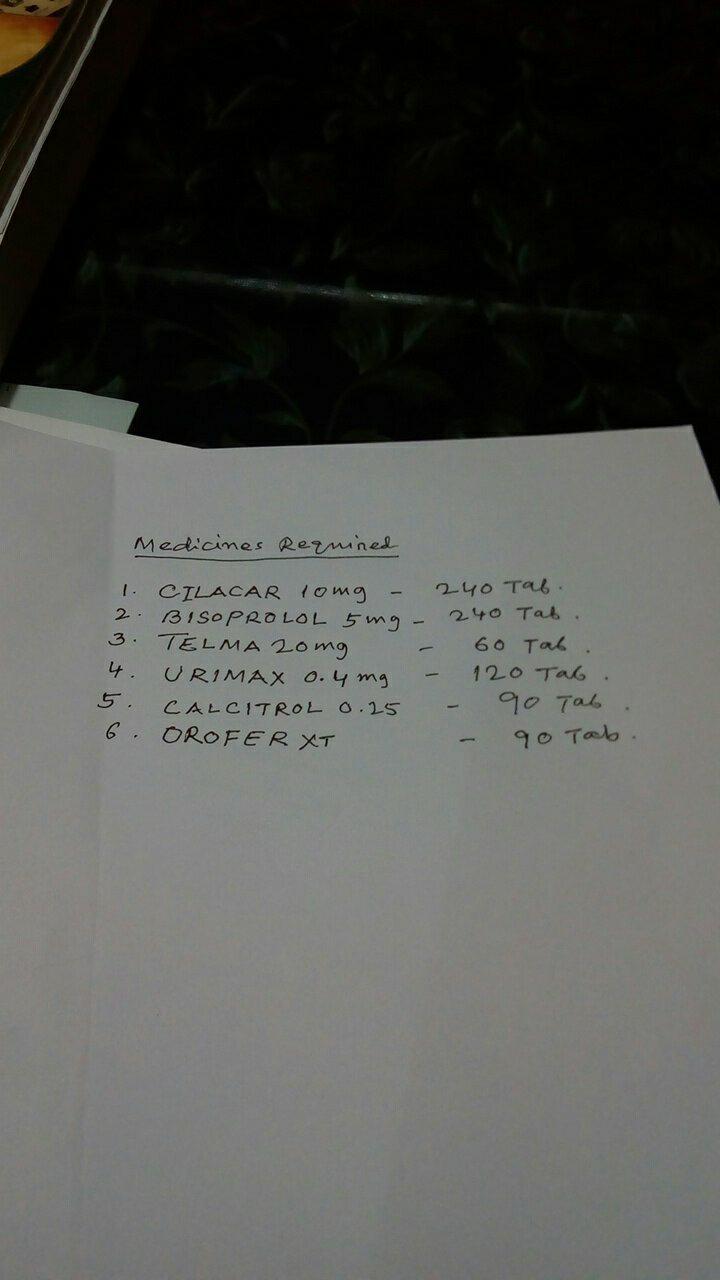 Medicines Required
1. CILACAR 10mg - 240 Tab.
2. BISOPROLOL 5mg - 240 Tab.
3. TELMA 20mg - 60 Tab.
4. URIMAX 0.4mg - 120 Tab.
5. CALCITROL 0.25 - 90 Tab.
6. OROFER XT - 90 Tab.